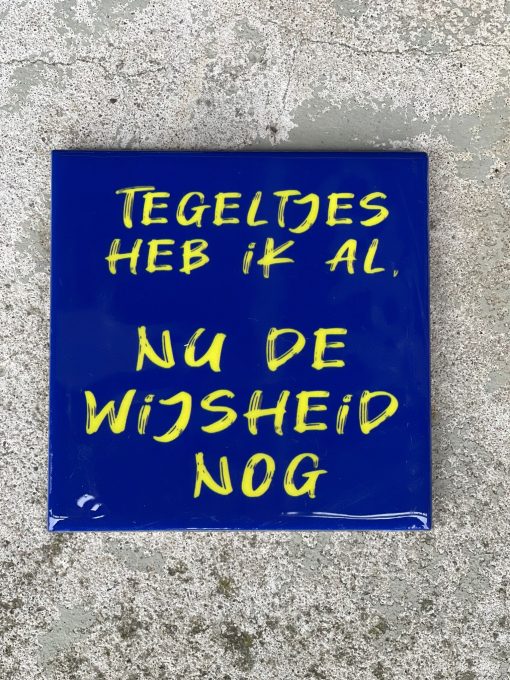 TEGELTJES
HEB iK AL.
NU DE
WiJSHEiD
NOG